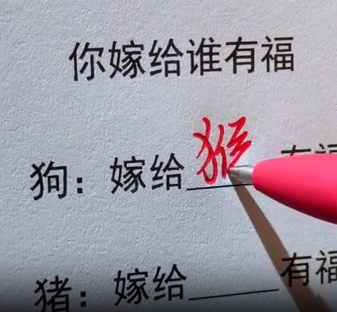 你嫁给谁有福
狗：嫁给猴有福
猪：嫁给______有福